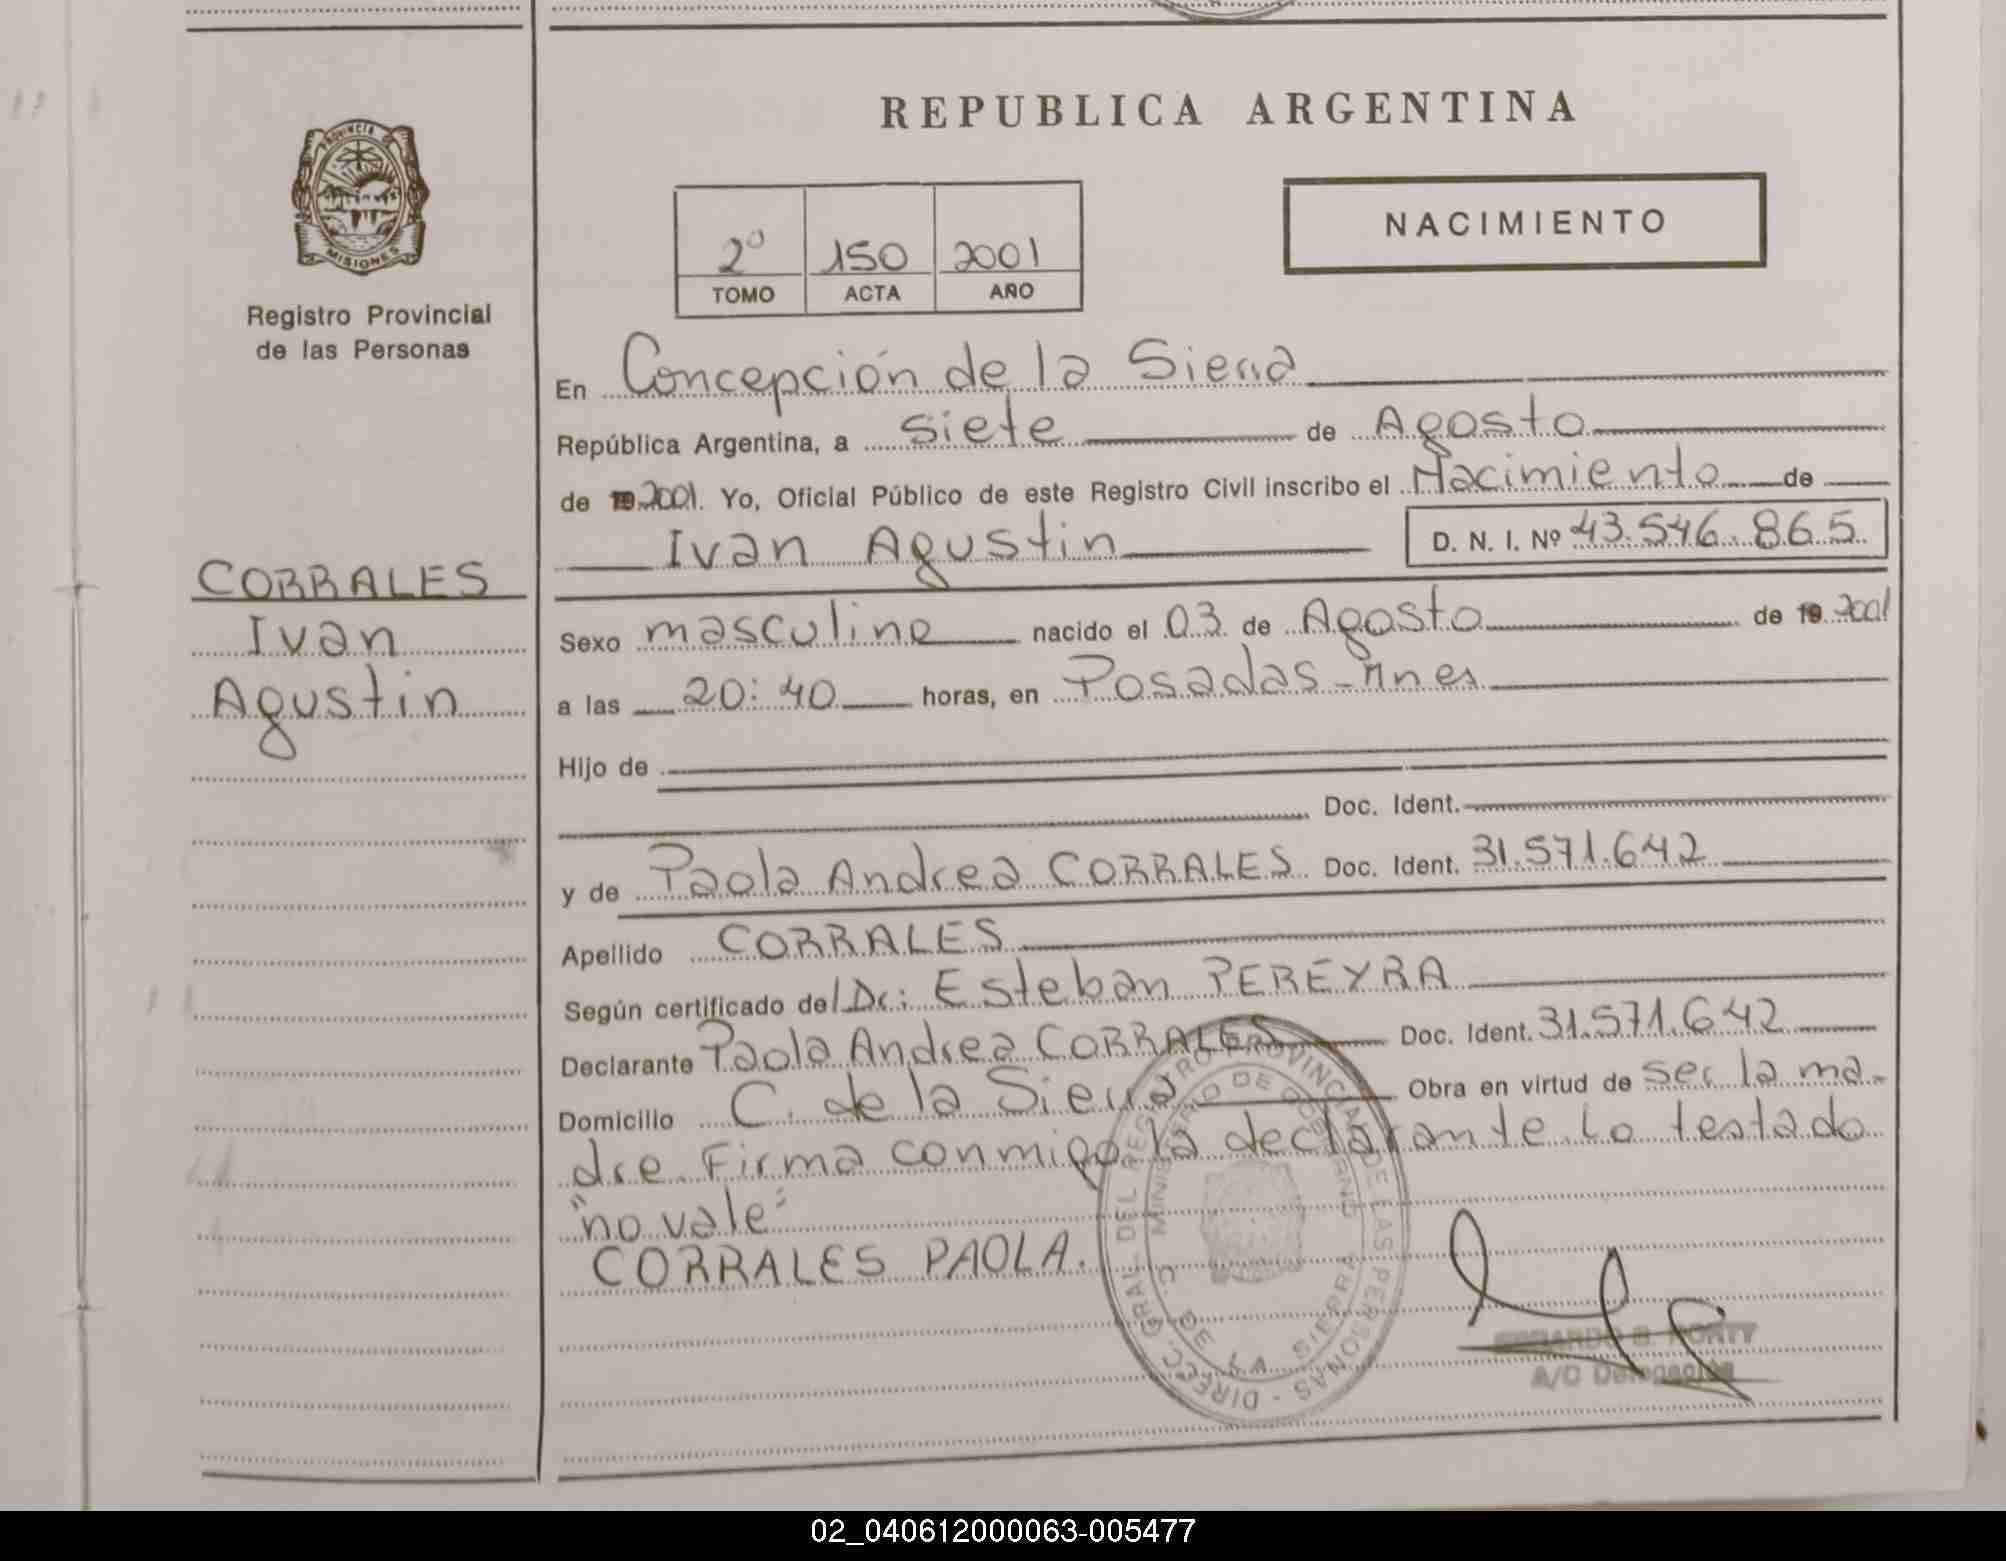 REPUBLICA ARGENTINA
PROVINCIA
MISIONES
Registro Provincial
de las Personas
NACIMIENTO
2º 150 2001
TOMO ACTA AÑO
En Concepción de la Sierra
República Argentina, a siete de Agosto
de 19 2001. Yo, Oficial Público de este Registro Civil inscribo el Nacimiento de
Ivan Agustin D. N. I. Nº 43.546.865
CORRALES
Ivan
Agustin
Sexo masculino nacido el 03 de Agosto de 19 2001
a las 20:40 horas, en Posadas - Mnes
Hijo de
Doc. Ident.
y de Paola Andrea CORRALES Doc. Ident. 31.571.642
Apellido CORRALES
Según certificado del Dr: Esteban PEREYRA
Declarante Paola Andrea CORRALES Doc. Ident. 31.571.642
Domicilio C. de la Sierra Obra en virtud de ser la ma-
dre. Firma conmigo la declarante. Lo testado
"no vale"
CORRALES PAOLA.
DIRECC. GRAL. DEL REGISTRO PROVINCIAL DE LAS PERSONAS
MINISTERIO DE GOBIERNO
C. DE LA SIERRA
A/C Delegación
02_040612000063-005477